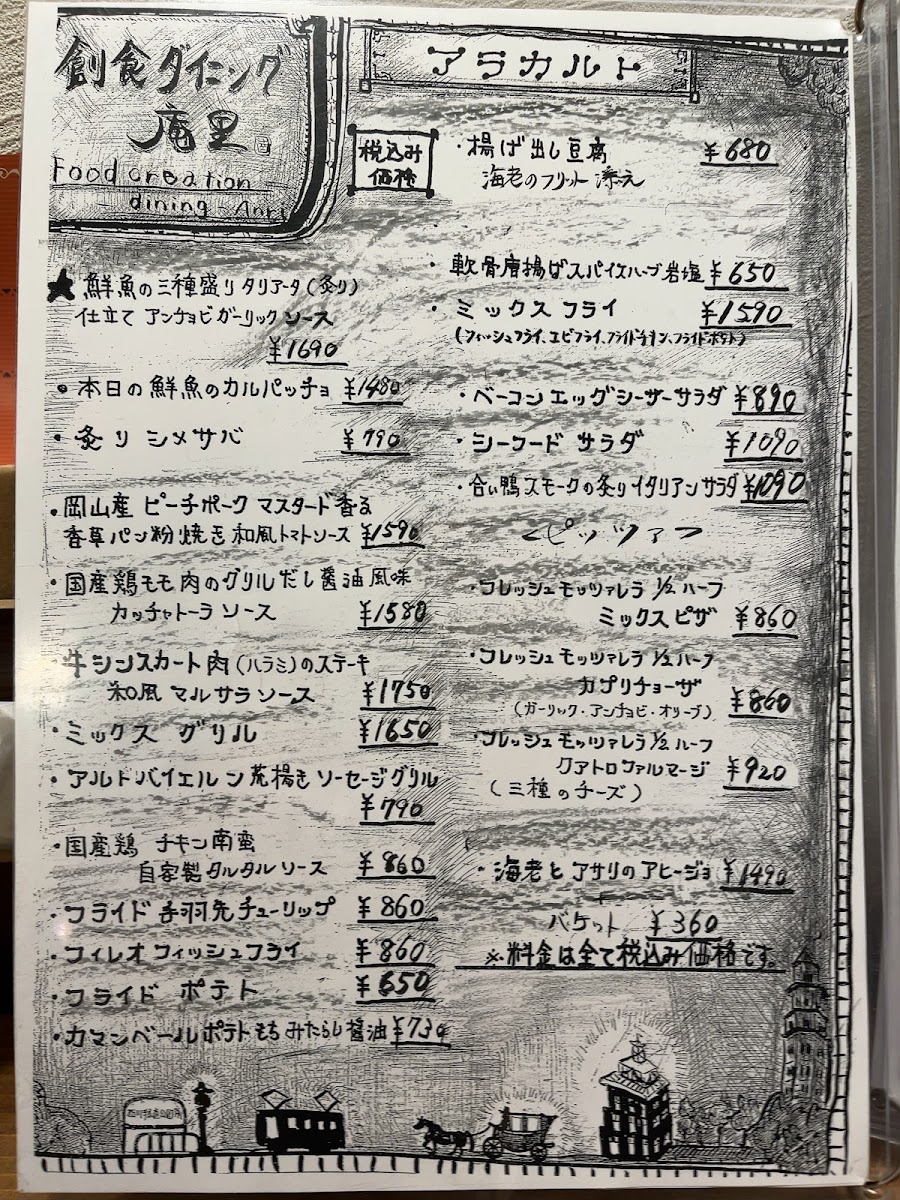 創食ダイニング
庵里
Food creation
dining Anri
アラカルト
税込み
価格
・揚げ出し豆腐 ¥680
海老のフリット添え
★鮮魚の三種盛りタリアータ(炙り)
仕立て アンチョビガーリックソース
¥1690
・本日の鮮魚のカルパッチョ ¥1480
・炙りシメサバ ¥790
・岡山産 ピーチポーク マスタード香る
香草パン粉焼き 和風トマトソース ¥1590
・国産鶏モモ肉のグリルだし醤油風味
カッチャトーラソース ¥1580
・牛シンスカート肉(ハラミ)のステーキ
和風マルサラソース ¥1750
・ミックスグリル ¥1650
・アルトバイエルン荒挽きソーセージグリル
¥790
・国産鶏 チキン南蛮
自家製タルタルソース ¥860
・フライド手羽先チューリップ ¥860
・フィレオフィッシュフライ ¥860
・フライドポテト ¥650
・カマンベールポテトもちみたらし醤油 ¥730
・軟骨唐揚げスパイスハーブ岩塩 ¥650
・ミックスフライ ¥1590
(フィッシュフライ、エビフライ、フライドチキン、フライドポテト)
・ベーコンエッグシーザーサラダ ¥890
・シーフードサラダ ¥1090
・合い鴨スモークの炙りイタリアンサラダ ¥1090
ピッツァ
・フレッシュモッツァレラ 1/2ハーフ
ミックスピザ ¥860
・フレッシュモッツァレラ 1/2ハーフ
カプリチョーザ ¥860
(ガーリック・アンチョビ・オリーブ)
・フレッシュモッツァレラ 1/2ハーフ
クアトロファルマージ ¥920
(三種のチーズ)
・海老とアサリのアヒージョ ¥1490
+
バケット ¥360
※料金は全て税込み価格です。